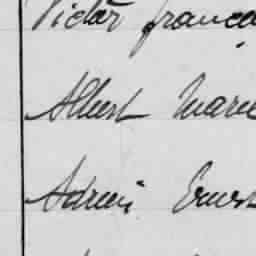 Victor frança
Albert Marie
Adrien Ernest